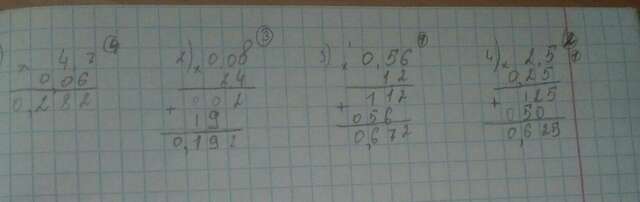 4,7 ④
× 0,06
0,282
2) × 0,08 ③
24
+ 002
19
0,192
3) × 0,56
12
+ 112
056
0,672
4) × 2,5
0,25
+ 125
050
0,625